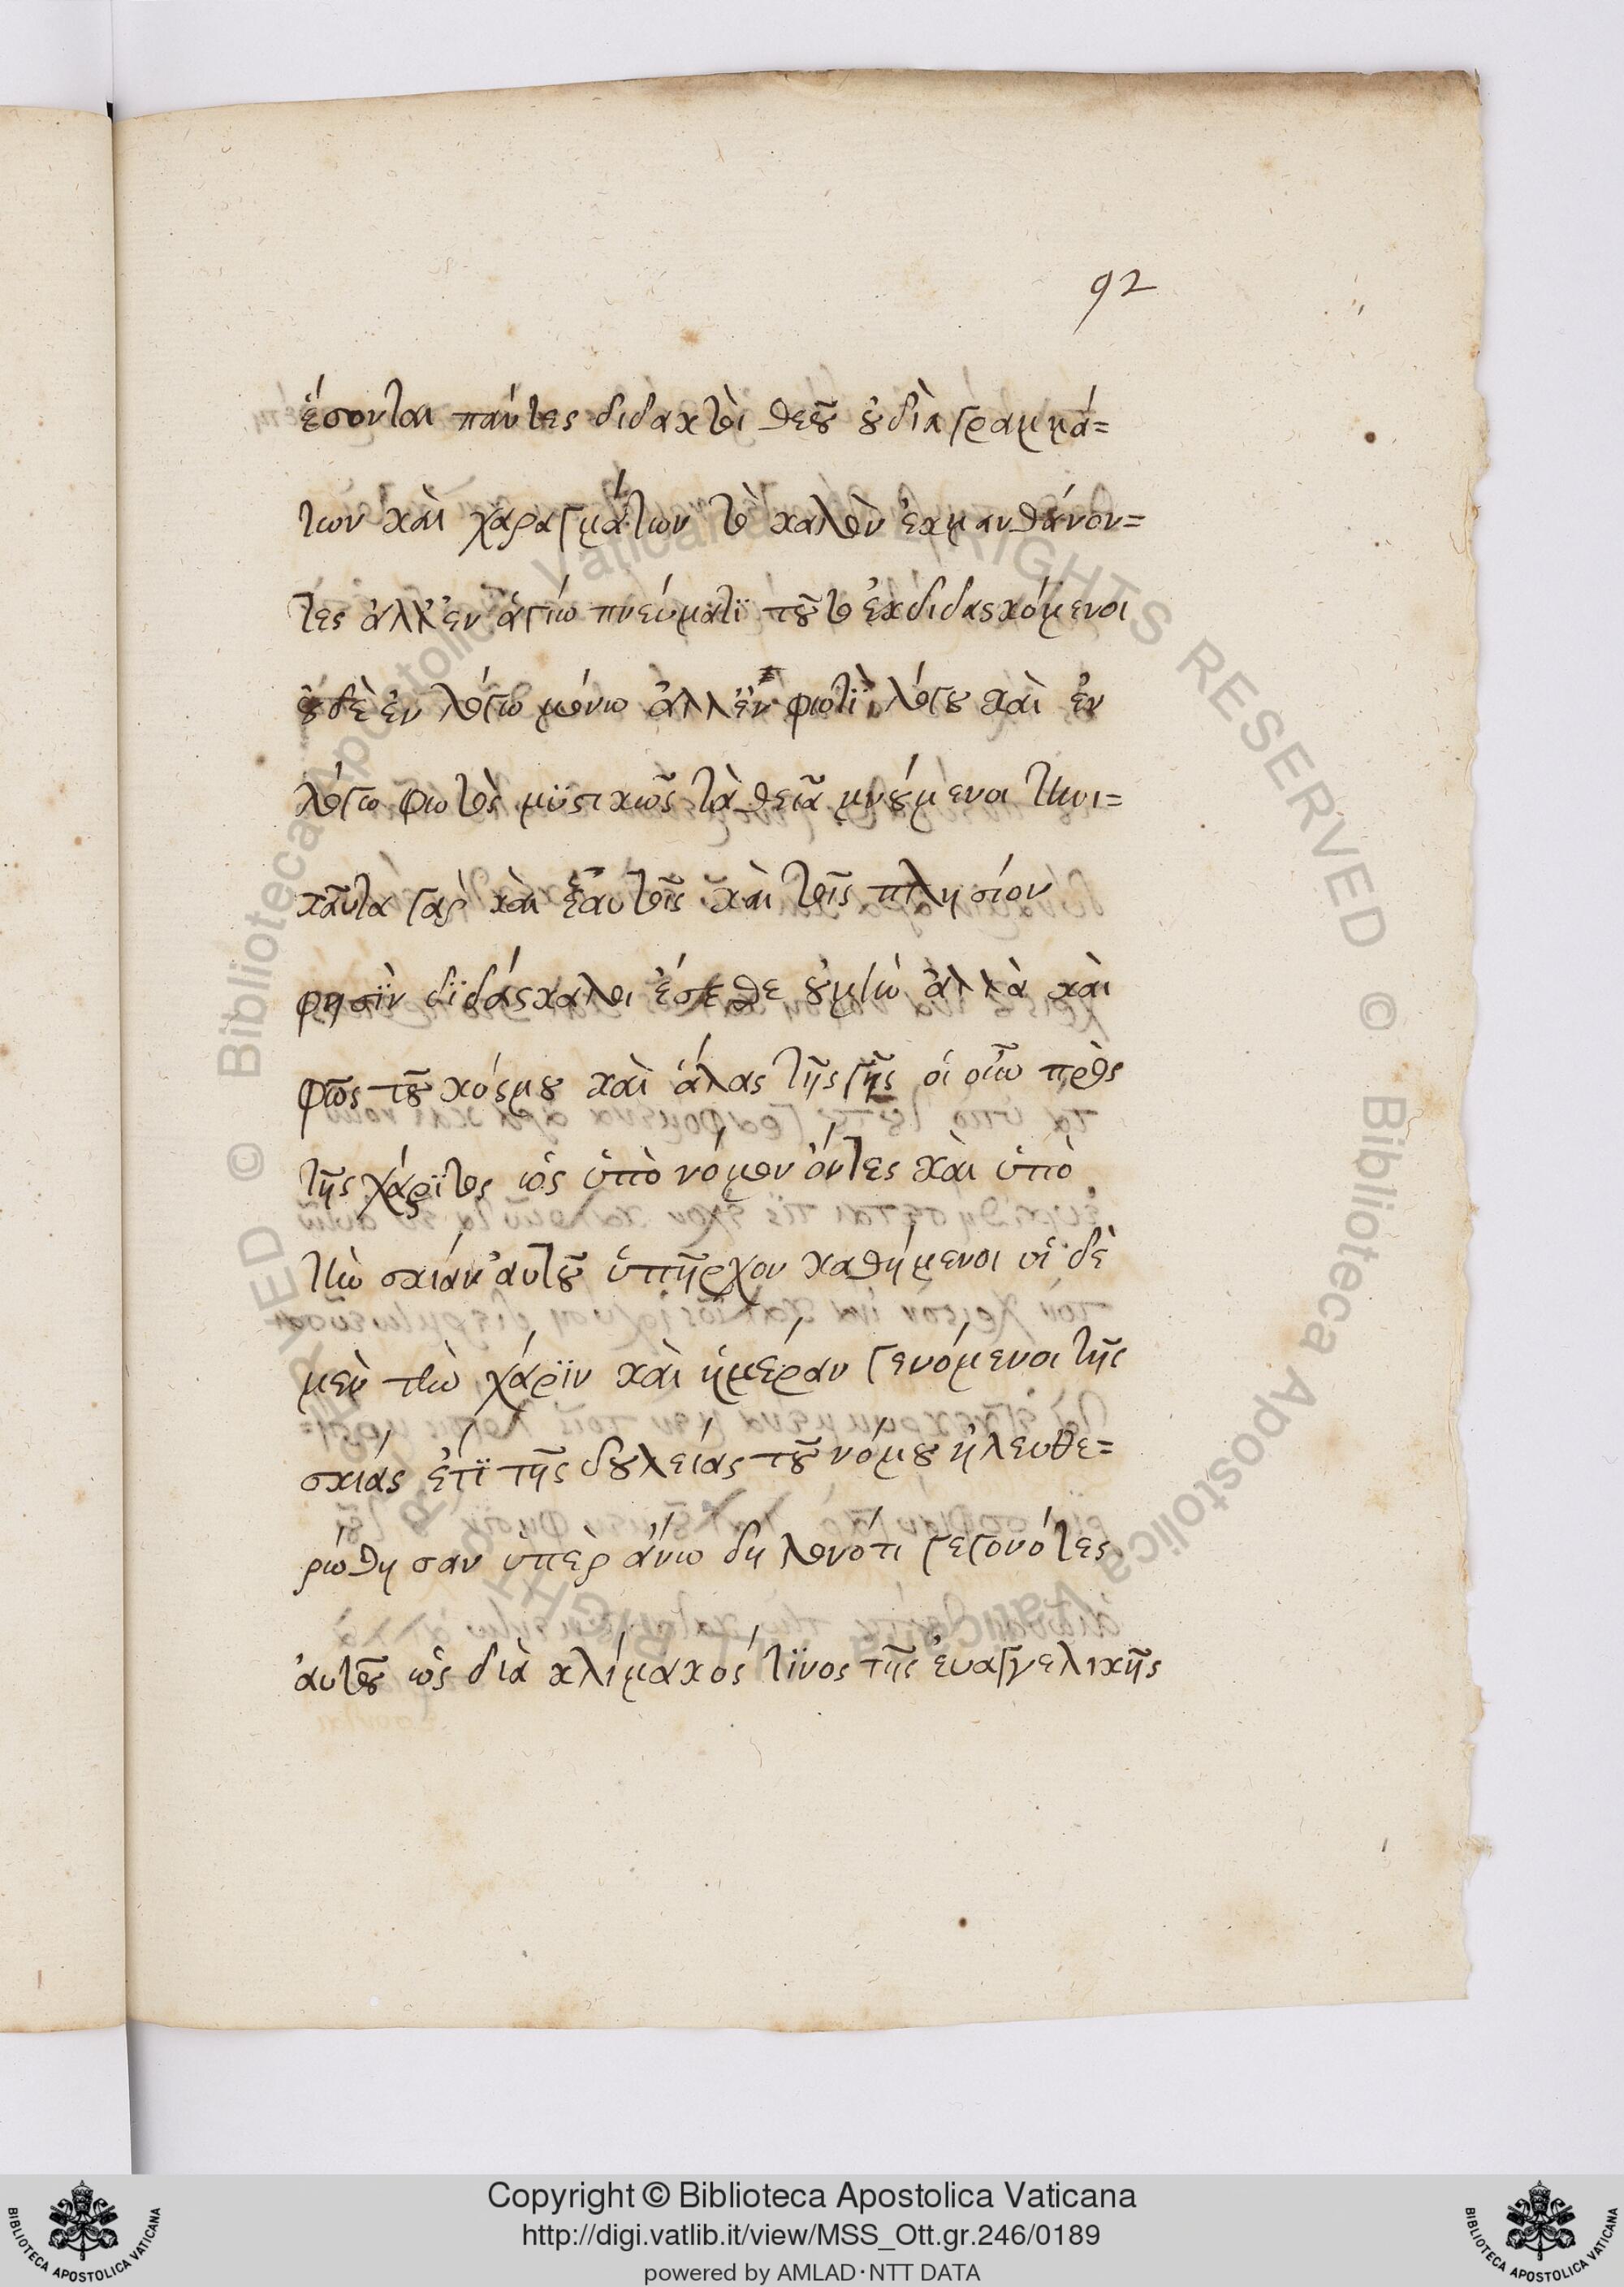 92
ἔσονται πάντες διδακτὸι θεοῦ οὐ δὶα γραμμά=
των κὰι χαραγμάτων τὸ καλὸν ἐκμανθάνον=
τες ἀλλ' ἐν ἁγίω πνεύματϊ τοῦτο ἐκδιδασκόμενοι
οὐδὲ ἐν λόγω μόνω ἀλλ' ἐν φωτὶ λόγου κὰι ἐν
λόγω φωτὸς μϋστικῶς τὰ θεῖα μυούμενοι τηνι=
καῦτα γὰρ κὰι ἑαυτοῖς κὰι τοῖς πλησίον
φησϊν δϊδάσκαλοι ἔσεσθε οὐ μὴν ἀλλὰ κὰι
φῶς τοῦ κόσμου κὰι ἅλας τῆς γῆς οἱ οὖν πρὸ
τῆς χάρϊτος ὡς ὑπὸ νόμον ὄντες κὰι ὑπὸ
τὴν σκιὰν ἀυτοῦ ὑπῆρχον καθήμενοι οἱ δὲ
μεν τὴν χάρϊν κὰι ἡμέραν γενόμενοι τῆς
σκιάς ἐτϊ τῆς δουλείας τοῦ νόμου ἠλευθε=
ρώθησαν ὑπὲρ ἄνω δηλονότι γεγονότες
ἀυτοῦ ὡς διὰ κλίμακός τϊνος τῆς ἐυαγγελικῆς
Copyright © Biblioteca Apostolica Vaticana
http://digi.vatlib.it/view/MSS_Ott.gr.246/0189
powered by AMLAD·NTT DATA